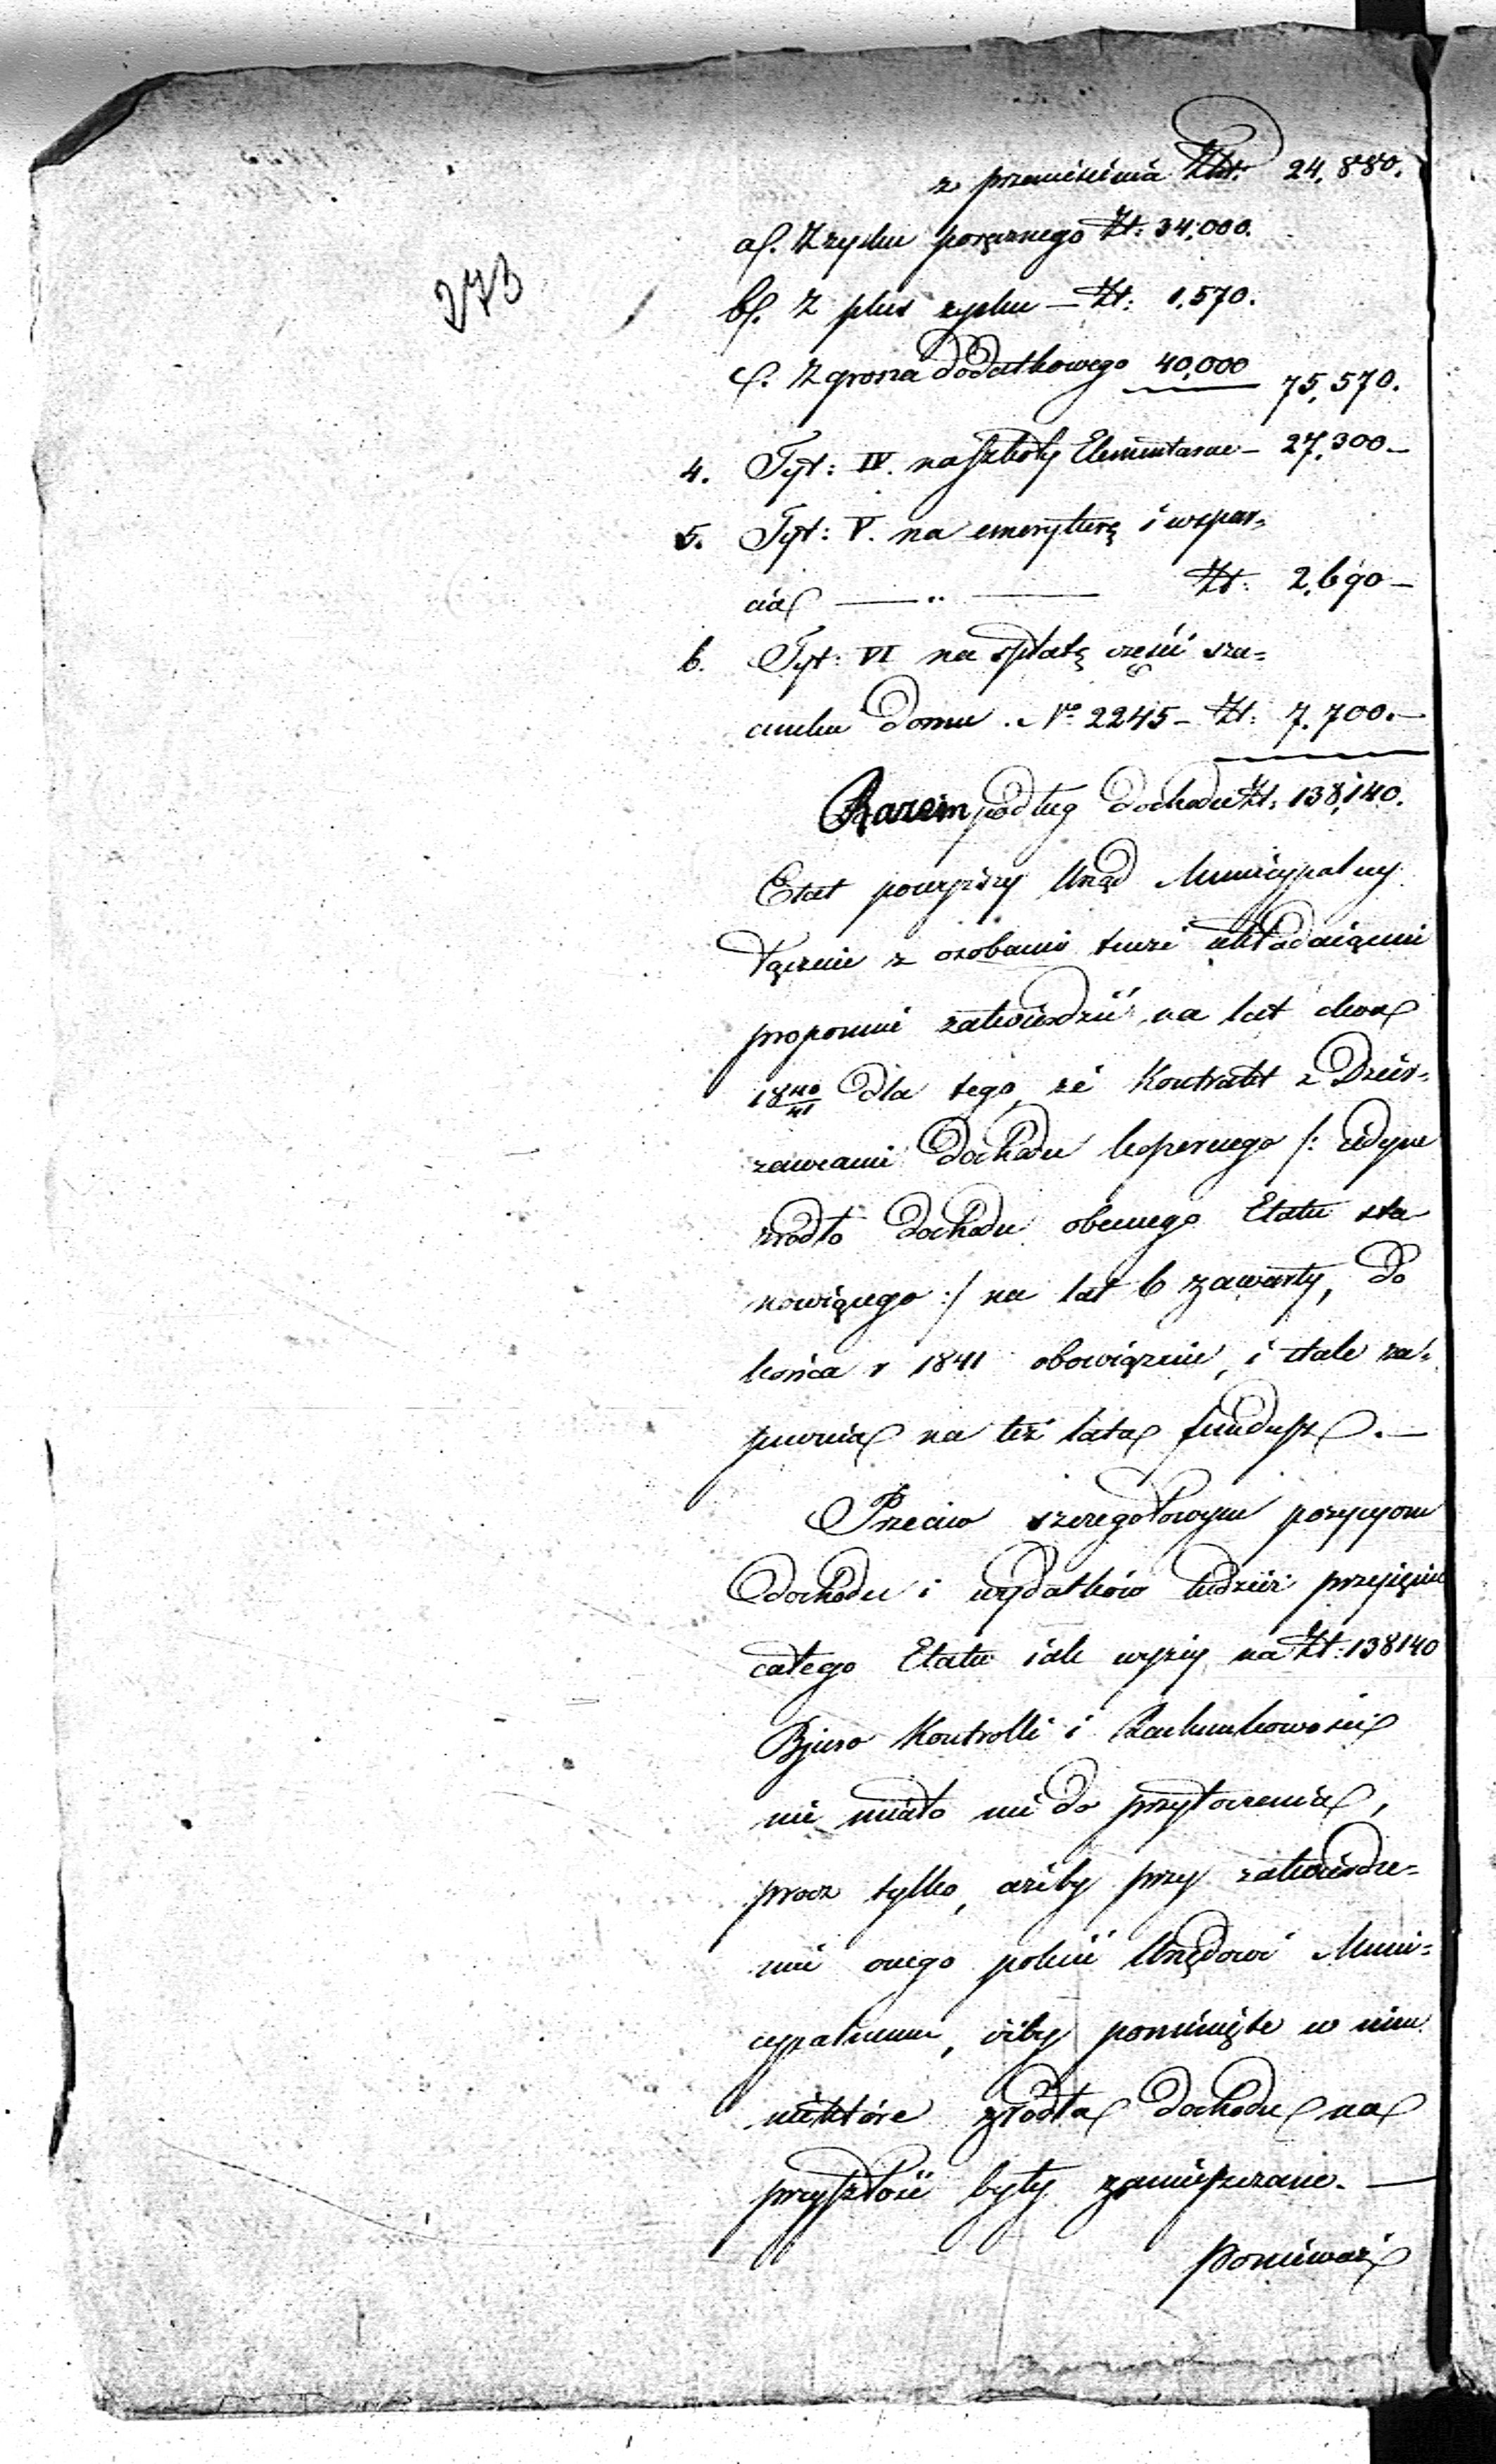 z przeniesienia Złt: 24,880.
273
a/. Z zysku poręcznego Zł: 34,000.
b/. Z plus zysku — Zł: 1,570.
c/. Z grosza dodatkowego 40,000 75,570.
4. Tyt: IV. na szkoły Elementarne — 27,300 —
5. Tyt: V. na emeryturę i wspar=
cia — „ — Zł: 2,690 —
6. Tyt: VI na spłatę części sza=
cunku domu N° 2245 — Zł: 7,700. —
Razem podług dochodu Zł: 138,140.
Etat powyższy Urząd Municypalny
łącznie z osobami skład
proponuie zatwierdzić na lat dwa
18 40/41 dla tego, że Kontrakt z Dzier=
zawcami dochodu kospernego /: iedyne
zrodło dochodu obecnego Etatu sta
nowiącego :/ na lat 6 zawarty, do
końca r 1841 obowiązuie, i stale za=
pewnia na też lata fundusz. —
Przeciw szeregołowym pozycyom
dochodu i wydatków tudzież przyięciu
całego Etatu iak wyżey na Zł: 138140
Bjuro Kontrolli i Rachunkowości
nie miało nic do przytoczenia,
procz tylko, ażeby przy zatwierdze=
niu onego polecić Urzędowi Muni=
cypalnemu, iżby pominięte w nim
niektóre zrodła dochodu na
przyszłość były zamieszczane. —
Ponieważ